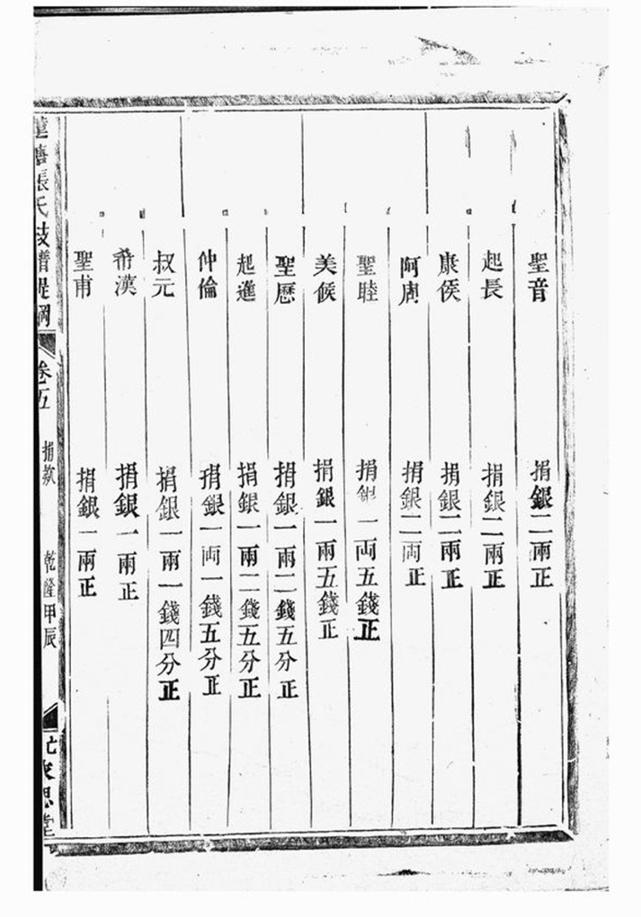 聖音 捐銀二兩正
起長 捐銀二兩正
康侯 捐銀二兩正
阿周 捐銀二両正
聖睦 捐銀一両五錢正
美候 捐銀一兩五錢正
聖歷 捐銀一兩二錢五分正
起進 捐銀一兩二錢五分正
仲倫 捐銀一両一錢五分正
叔元 捐銀一兩一錢四分正
希漢 捐銀一兩正
聖甫 捐銀一兩正
張氏支譜提綱 卷五 捐款 乾隆甲辰 思堂